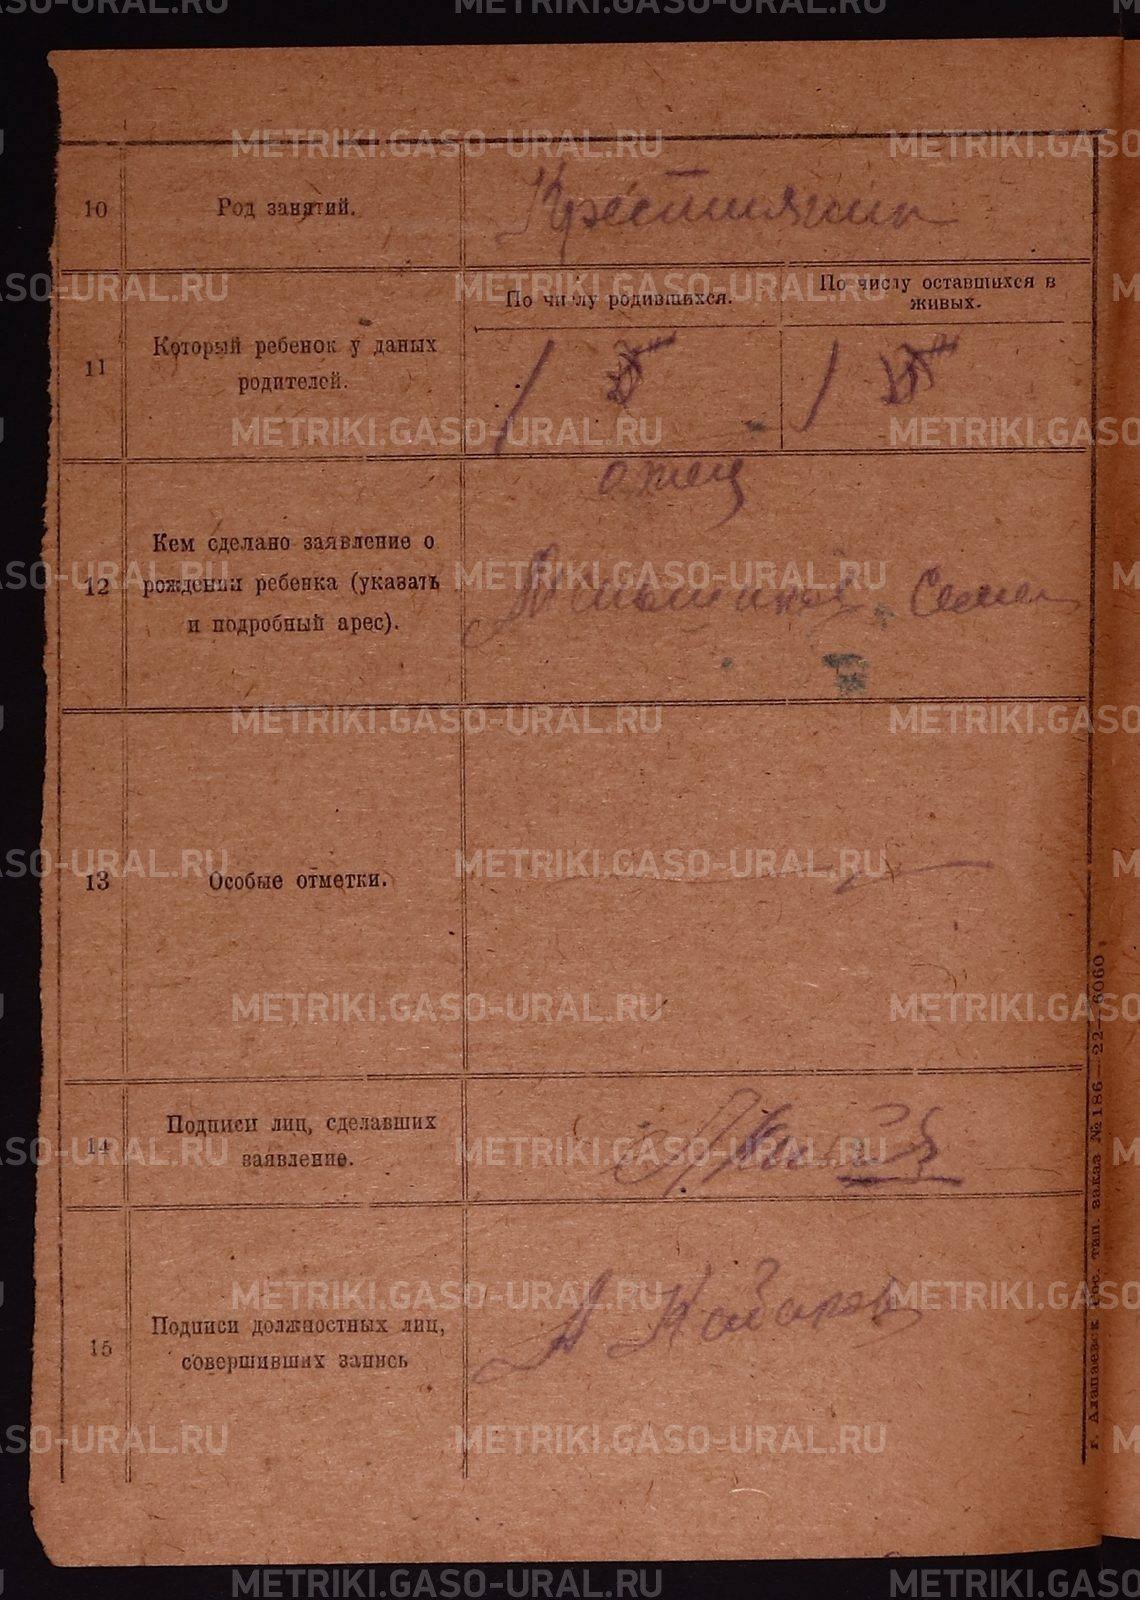 METRIKI.GASO-URAL.RU
10
Род занятий.
Крестиянин
11
Который ребенок у даных
родителей.
По числу родившихся.
По числу оставшихся в
живых.
1
1
отец
12
Кем сделано заявление о
рождении ребенка (указать
и подробный арес).
Семен
13
Особые отметки.
14
Подписи лиц, сделавших
заявление.
15
Подписи должностных лиц,
совершивших запись
г. Алапаевск Гос. тип. заказ № 186—22—6060